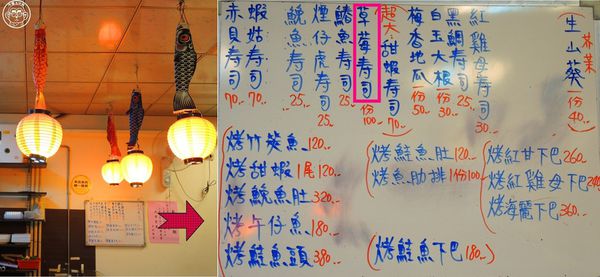 生山葵 芥茉 一份 40.-
紅雞母寿司 30.-
黑鯛寿司 25.-
白玉大根 一份 30.-
梅香地瓜 一份 50.-
超大甜蝦寿司 70.-
草莓寿司 一份 100.-
鰆魚寿司 25.-
煙仔虎寿司 25.-
鮸魚寿司 25.-
蝦姑寿司 70.-
赤貝寿司 70.-
烤竹筴魚 120.-
烤甜蝦 1尾 120.-
烤鮸魚肚 320.-
烤午仔魚 180.-
烤鮭魚頭 380.-
烤鮭魚肚 120.-
烤魚肋排 1份 100.-
烤鮭魚下巴 180.-
烤紅甘下巴 260.-
烤紅雞母下巴
烤海麗下巴 360.-